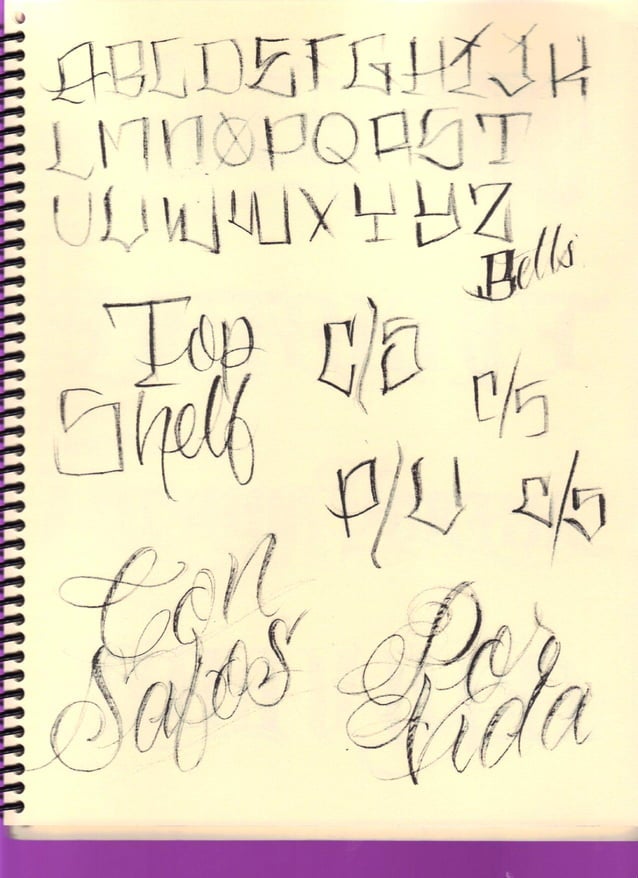 ABCDEFGHIJK
LMNOPQRST
UVWWXYYZ
Bells
Top
Shelf
C/S
C/S
P/V
C/S
Con
Safos
Por
Vida